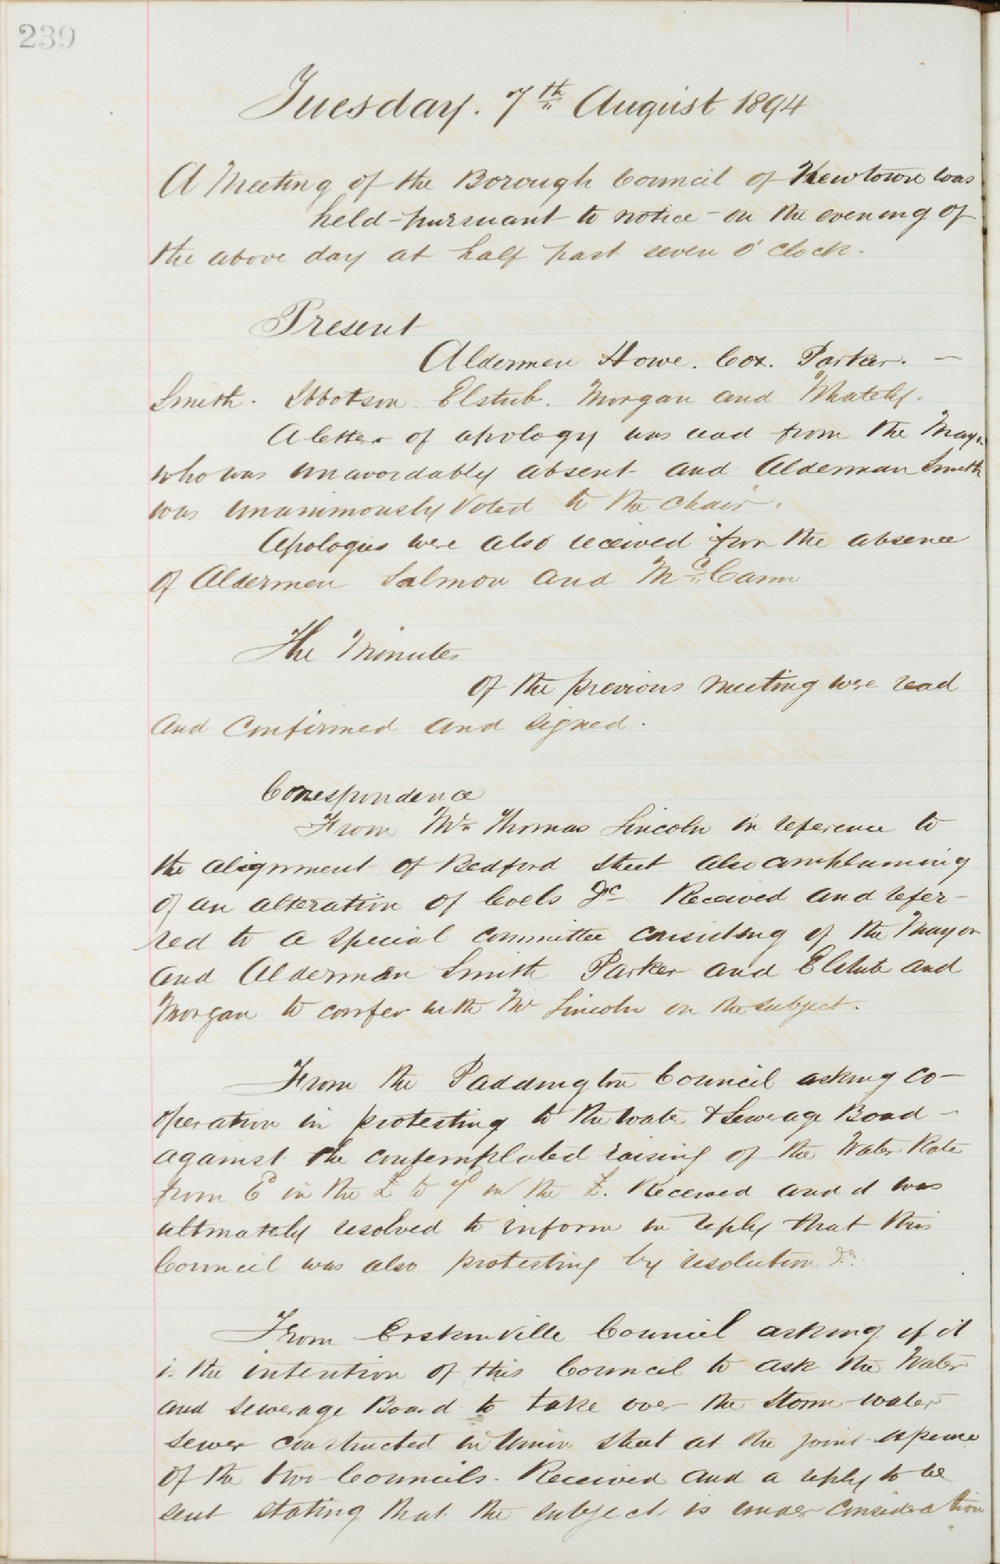 239
Tuesday. 7th August 1894
A Meeting of the Borough Council of Newtown was
held - pursuant to notice - on the evening of
the above day at half past seven o'clock.
Present
Aldermen Howe. Cox. Parker. —
Smith. Ibbotson Elstub. Morgan and Whately.
A letter of apology was read from the Mayor
who was unavoidably absent and Alderman Smith
was unanimously voted to the chair.
Apologies were also received for the absence
of Aldermen Salmon and McCann
The Minutes
of the previous meeting were read
and confirmed and signed.
Correspondence
From Mr Thomas Lincoln in reference to
the alignment of Bedford Street also complaining
of an alteration of levels &c. Received and refer-
red to a special committee consisting of the Mayor
and Aldermen Smith Parker and Elstub and
Morgan to confer with Mr Lincoln on the subject.
From the Paddington Council asking co-
operation in protesting to the Water & Sewerage Board -
against the contemplated raising of the Water Rate
from 6d in the £ to 7d in the £. Received and it was
ultimately resolved to inform in reply that this
Council was also protesting by resolution &c.
From Erskinville Council asking if it
is the intention of this Council to ask the Water
and Sewerage Board to take over the Storm-water
sewer constructed in Union Street at the joint expense
of the two Councils. Received and a reply to be
sent stating that the subject is under consideration